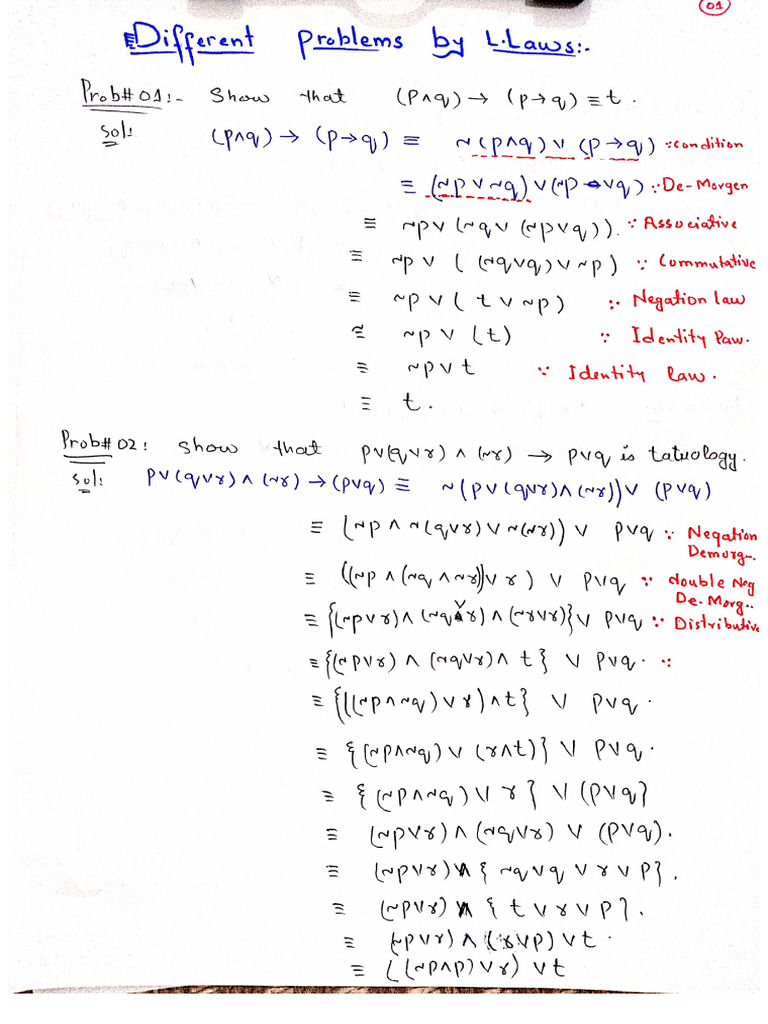 01
Different Problems by L.Laws:.
Prob#01:- Show that (P∧q) → (p→q) ≡ t.
Sol: (p∧q) → (p→q) ≡ ~(p∧q) ∨ (p→q) ∵condition
≡ (~p∨~q)∨(~p∨q) ∵De-Morgen
≡ ~p∨(~q∨(~p∨q)). ∵ Associative
≡ ~p∨ ((~q∨q)∨~p) ∵ Commutative
≡ ~p∨(t∨~p) ∵ Negation law
≡ ~p∨(t) ∵ Identity law.
≡ ~p∨t ∵ Identity law.
≡ t.
Prob#02: Show that p∨(q∨r)∧(~r) → p∨q is tatuology.
Sol: p∨(q∨r)∧(~r)→(p∨q) ≡ ~(p∨(q∨r)∧(~r))∨ (p∨q)
≡ (~p∧~(q∨r)∨~(~r)) ∨ p∨q ∵ Negation
Demorg..
≡ ((~p∧(~q∧~r))∨r) ∨ p∨q ∵ double Neg
De.Morg..
≡ {(~p∨r)∧(~q∨r)∧(~r∨r)}∨ p∨q ∵ Distributive
≡ {(~p∨r)∧(~q∨r)∧t} ∨ p∨q. ∵
≡ {((~p∧~q)∨r)∧t} ∨ p∨q.
≡ {(~p∧~q)∨(r∧t)} ∨ p∨q.
≡ {(~p∧~q)∨r} ∨(p∨q}
≡ (~p∨r)∧(~q∨r) ∨ (p∨q).
≡ (~p∨r)∧{~q∨q∨r∨p}.
≡ (~p∨r)∧{t∨r∨p}.
≡ (~p∨r)∧(r∨p)∨t.
≡ ((~p∧p)∨r)∨t